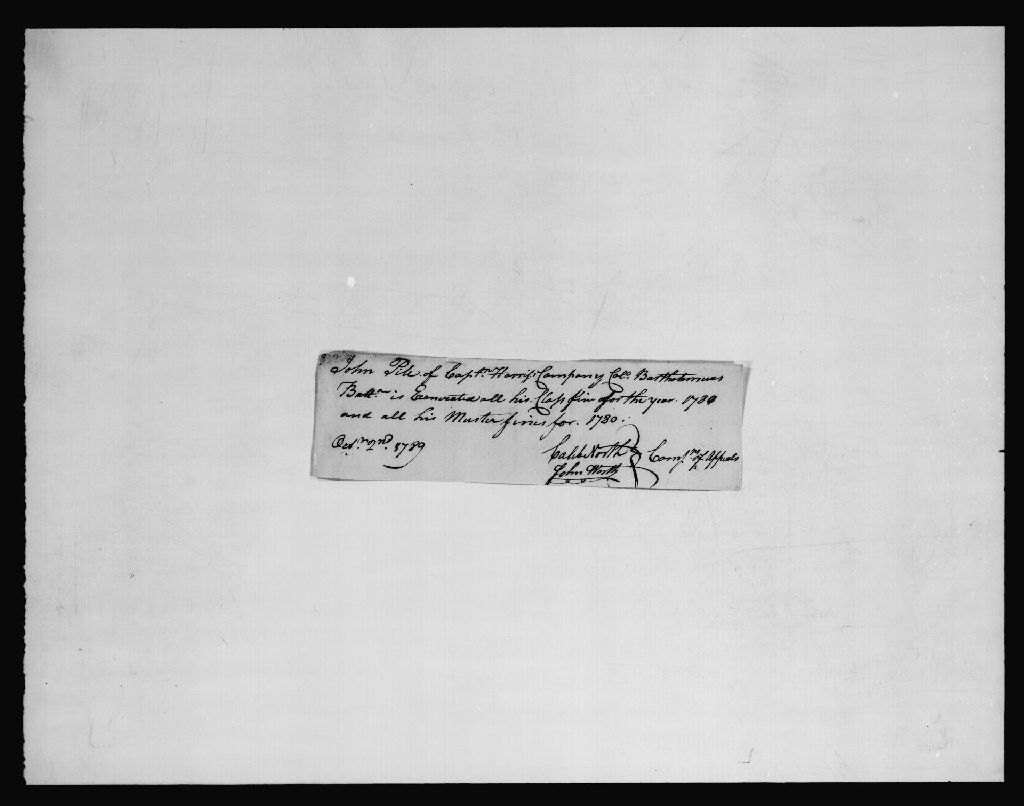 John Pile of Captn. Harris's Company Colo. Bartholomews
Battn. is Exonerated all his Class fines for the year. 1780
and all his Muster fines for. 1780
Octr. 2nd. 1789
Caleb North
John Worth
Comsrs. of Appeals